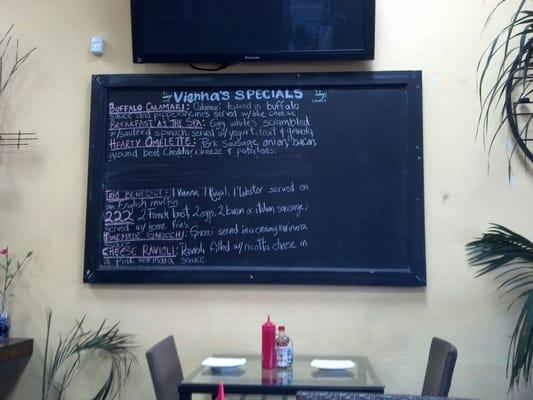 Panasonic
Vienna's SPECIALS
BUFFALO CALAMARI: Calamari tossed in buffalo
sauce and pepperchini's served w/ bleu cheese
BREAKFAST AT THE SPA: Egg whites scrambled
w/ sauteed spinach, served w/ yogurt, fruit & granola
HEARTY OMELETTE: Pork Sausage, onion, bacon,
ground beef, Cheddar cheese & potatoes.
TRIO BENEDICT: 1 Vienna, 1 Royal, 1 lobster served on
an English muffin
222 2 French toast, 2 eggs, 2 bacon or italian sausage,
served w/ home fries
HOMEMADE GNOCCHI: Gnocci served in a creamy marinara
CHEESE RAVIOLI: Ravioli filled w/ ricotta cheese in
a pink marinara sauce